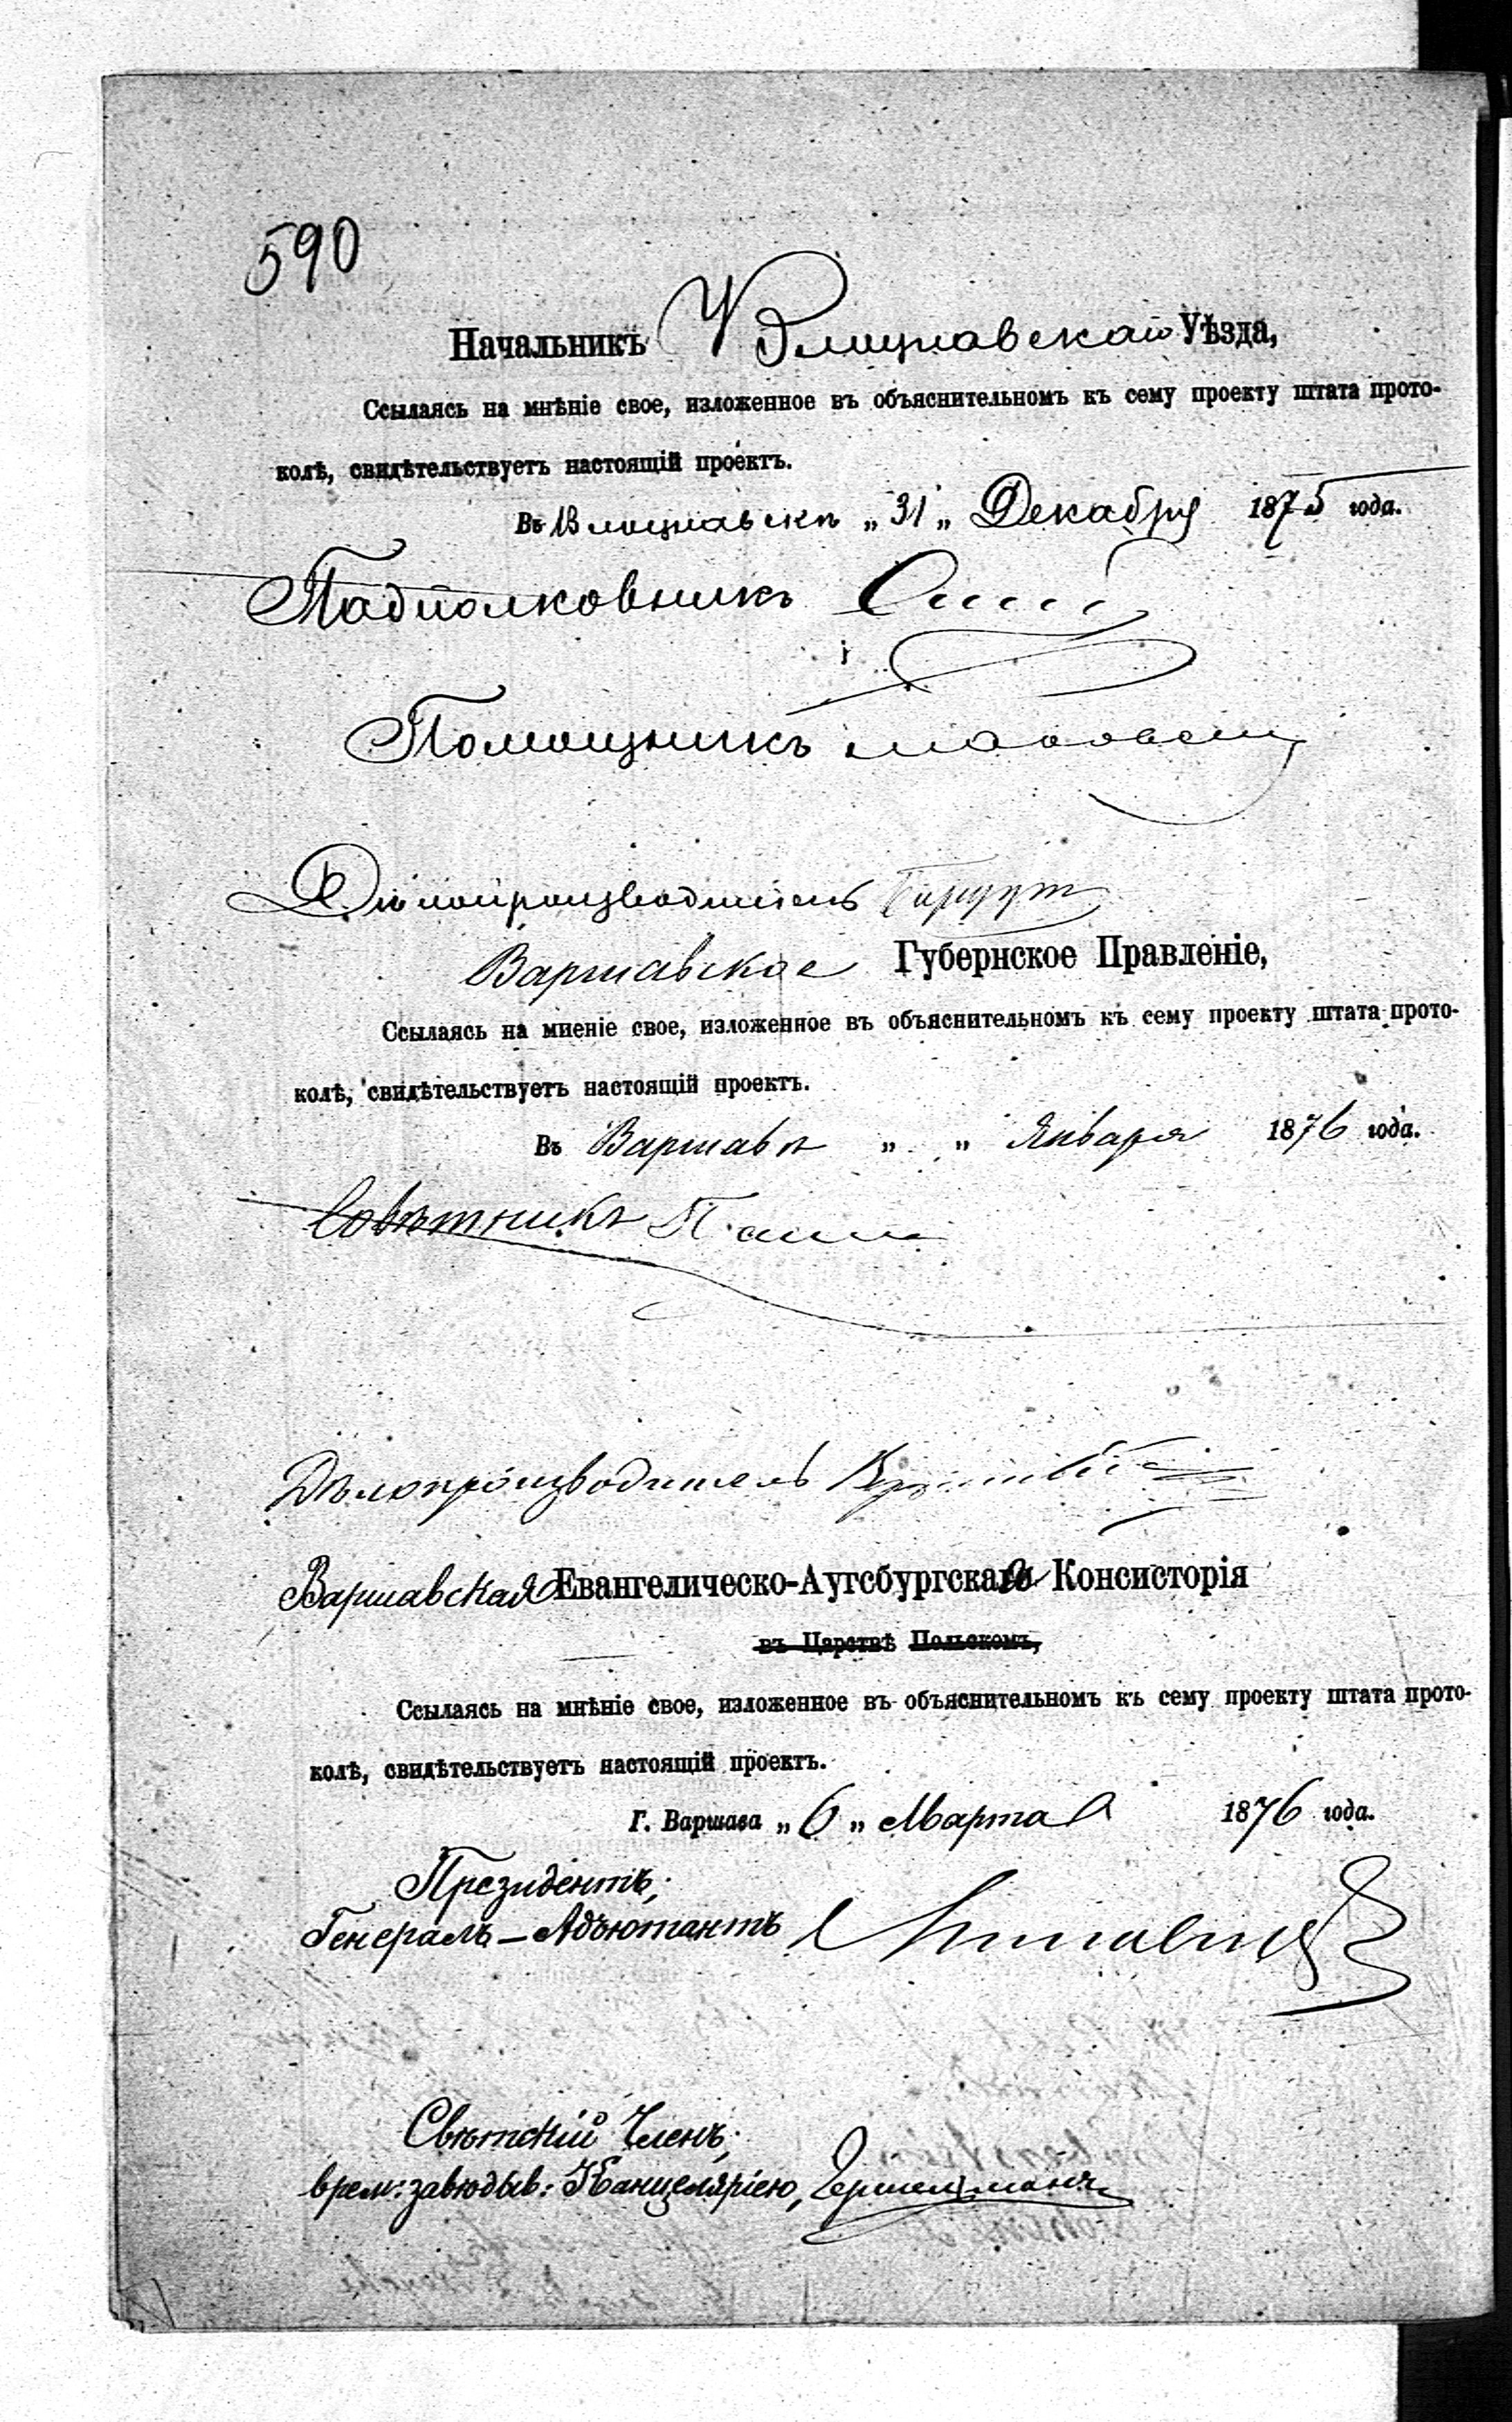 590
Начальникъ Влоцлавскаго Уѣзда,
Ссылаясь на мнѣніе свое, изложенное въ объяснительномъ къ сему проекту штата прото-
колѣ, свидѣтельствуетъ настоящій проектъ.
Въ Влоцлавскѣ „31„ Декабря 1875 года.
Подполковникъ
Помощникъ
Дѣлопроизводитель
Варшавское Губернское Правленіе,
Ссылаясь на миеніе свое, изложенное въ объяснительномъ къ сему проекту штата прото-
колѣ, свидѣтельствуетъ настоящій проектъ.
Въ Варшавѣ „ „ Января 1876 года.
Совѣтникъ
Дѣлопроизводитель
Варшавская Евангелическо-Аугсбургская Консисторія
въ Царствѣ Польскомъ,
Ссылаясь на мнѣніе свое, изложенное въ объяснительномъ къ сему проекту штата прото-
колѣ, свидѣтельствуетъ настоящій проектъ.
Г. Варшава „6„ Марта 1876 года.
Президентъ,
Генералъ-Адъютантъ
Свѣтскій Членъ,
врем: завѣдыв: Канцеляріею,